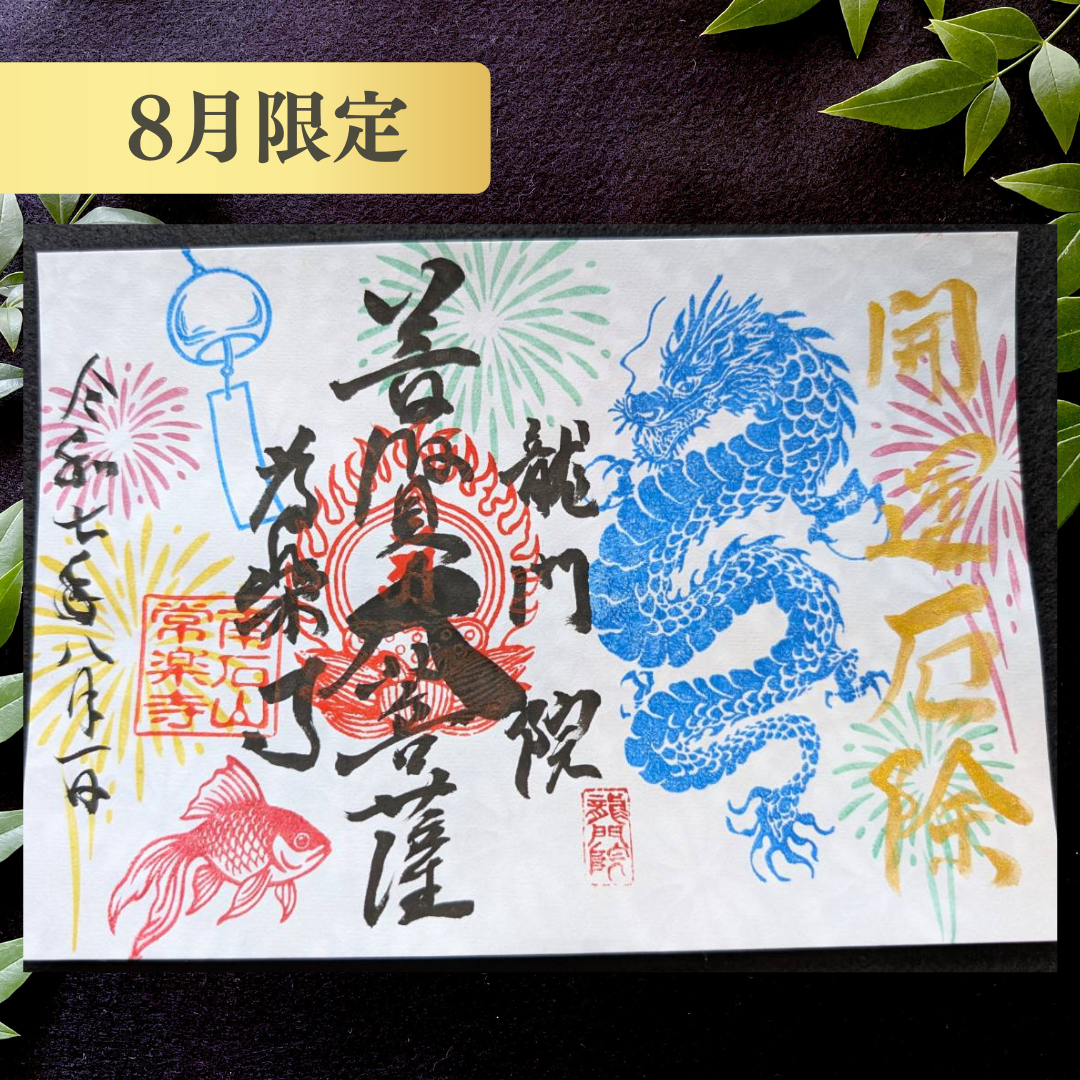 8月限定
開運厄除
龍門院
龍門院
普賢大菩薩
常楽寺
南石山
常楽寺
令和七年八月一日